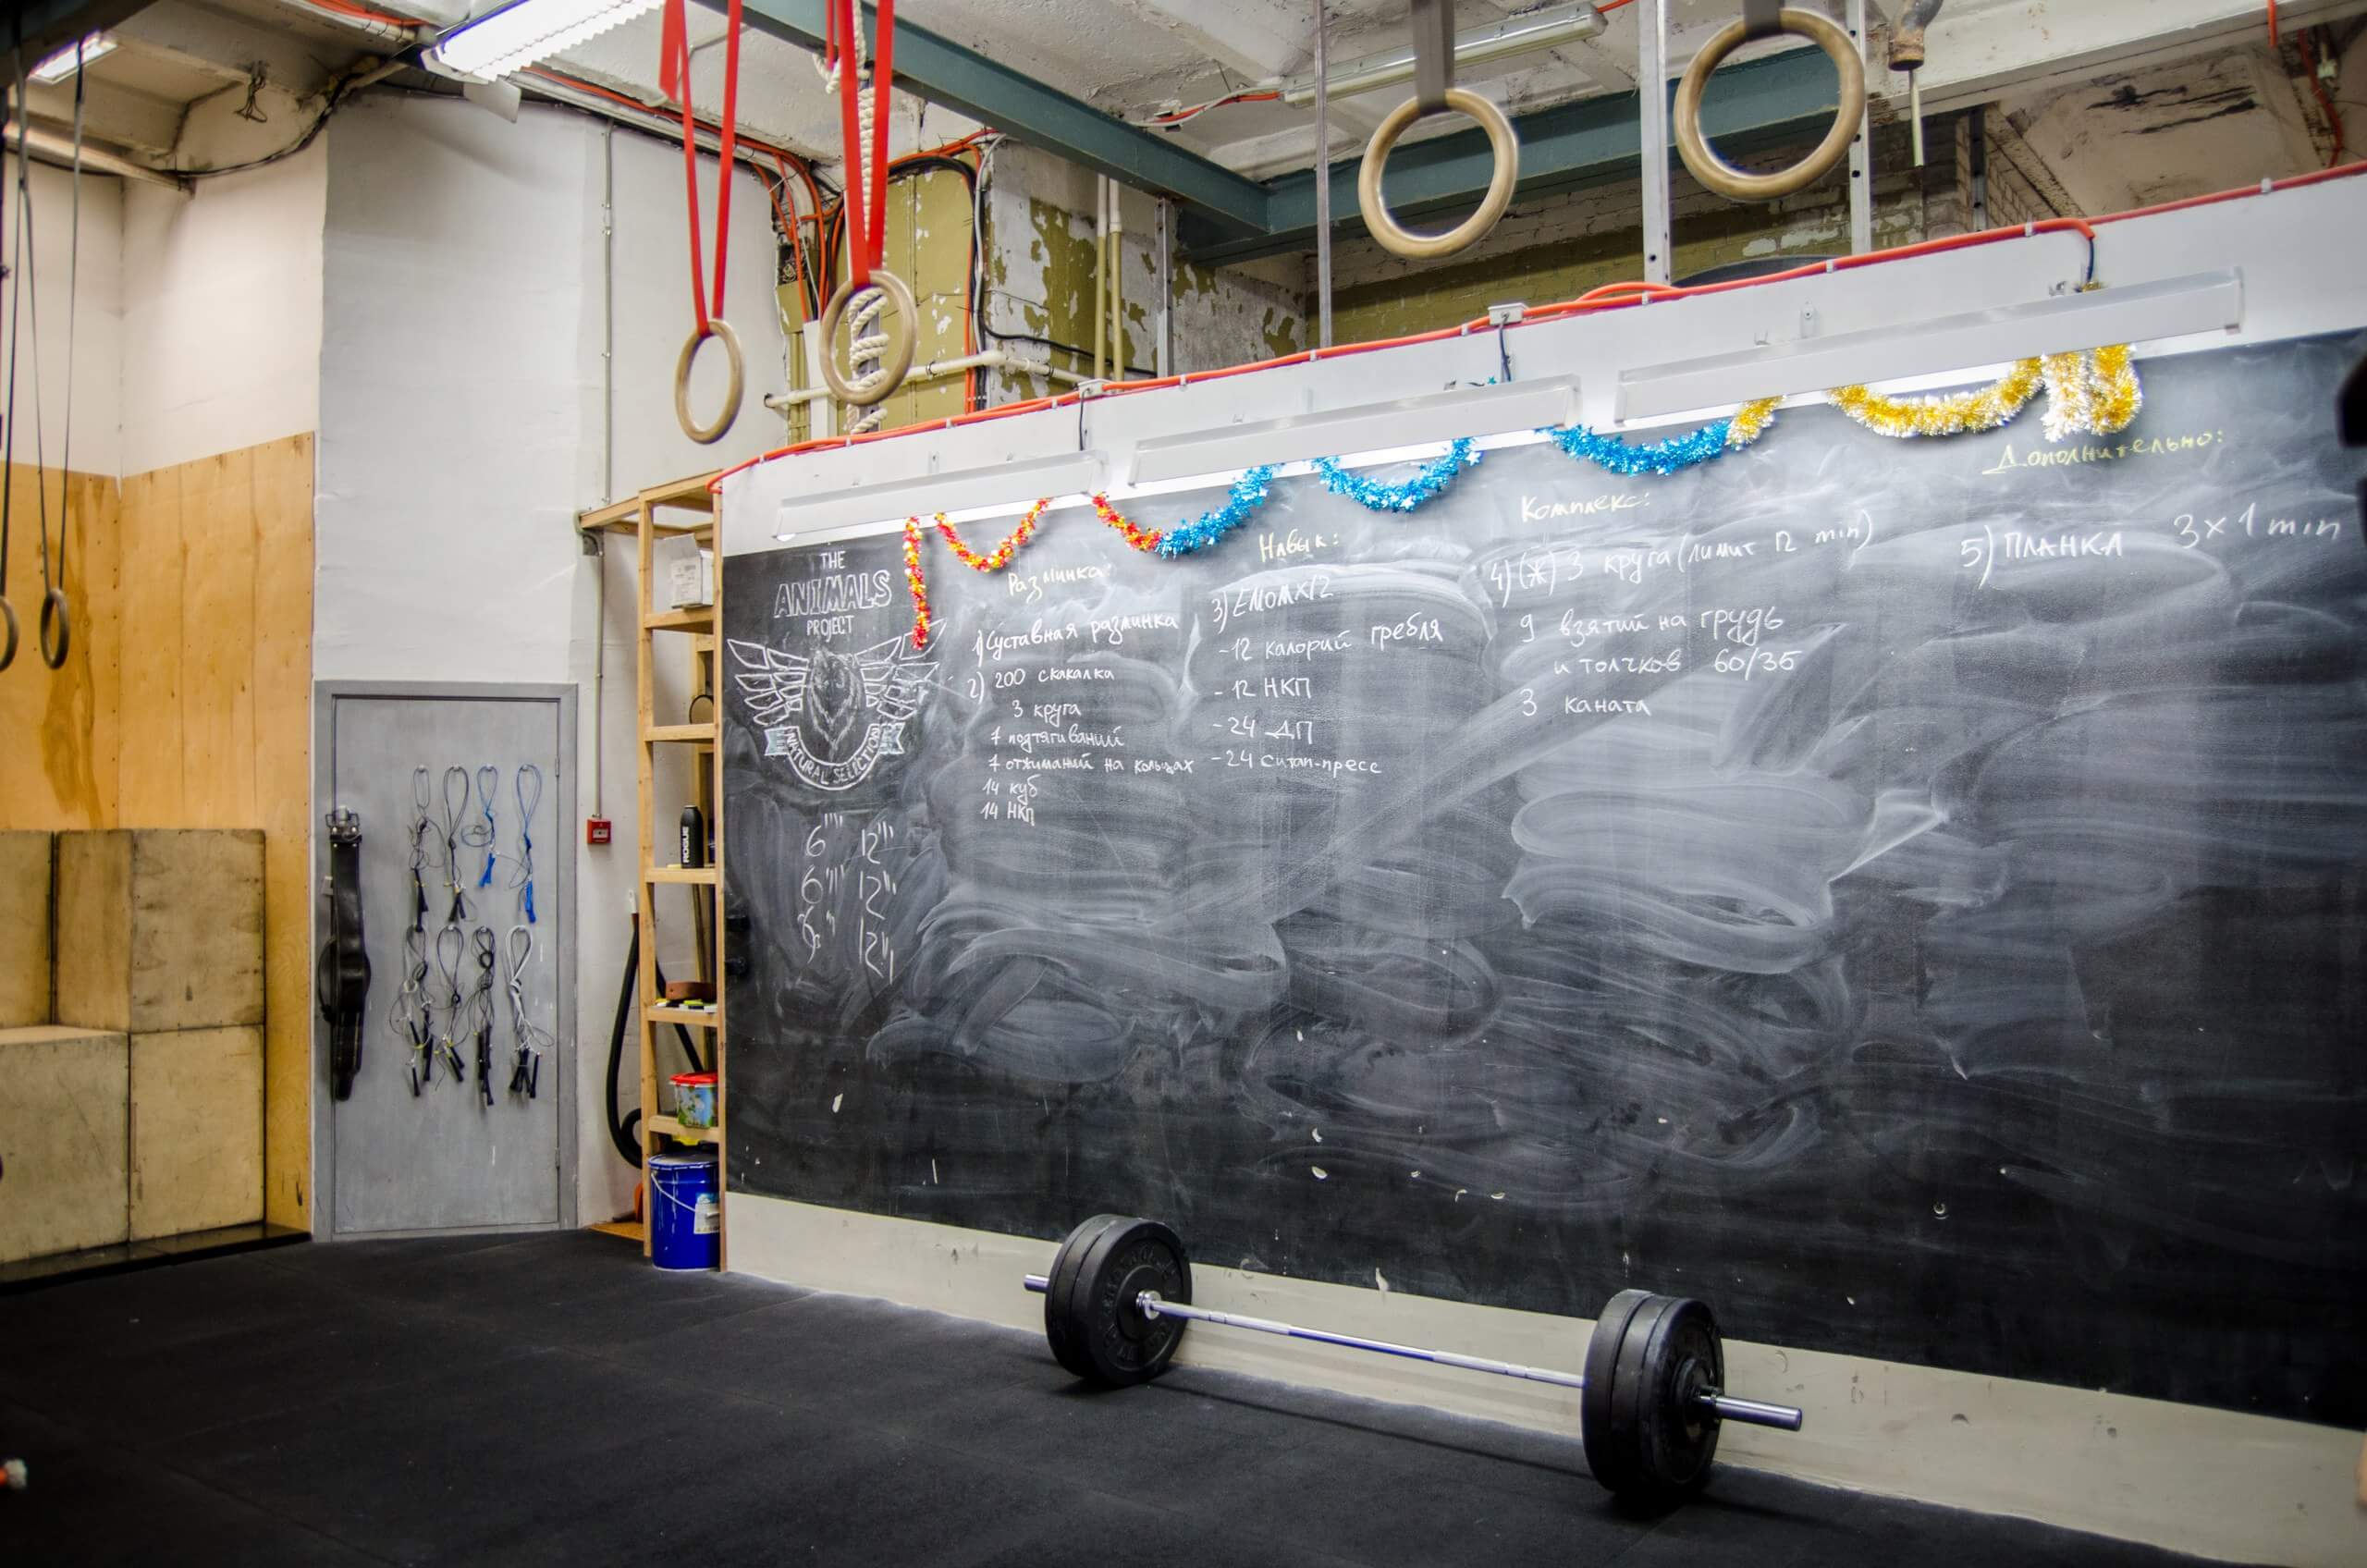 THE
ANIMALS
PROJECT
NATURAL SELECTION
6"" 12""
6"" 12""
12"
Разминка:
1) Суставная разминка
2) 200 скакалка
3 круга
7 подтягиваний
7 отжиманий на кольцах
14 куб
14 НКП
Навык:
3) EMOMX12
-12 калорий гребля
- 12 НКП
- 24 ДП
- 24 ситап-пресс
Комплекс:
4) (Ж) 3 круга (лимит 12 min)
9 взятий на грудь
и толчков 60/35
3 каната
Дополнительно:
5) ПЛАНКА 3 x 1 min
ROGUE